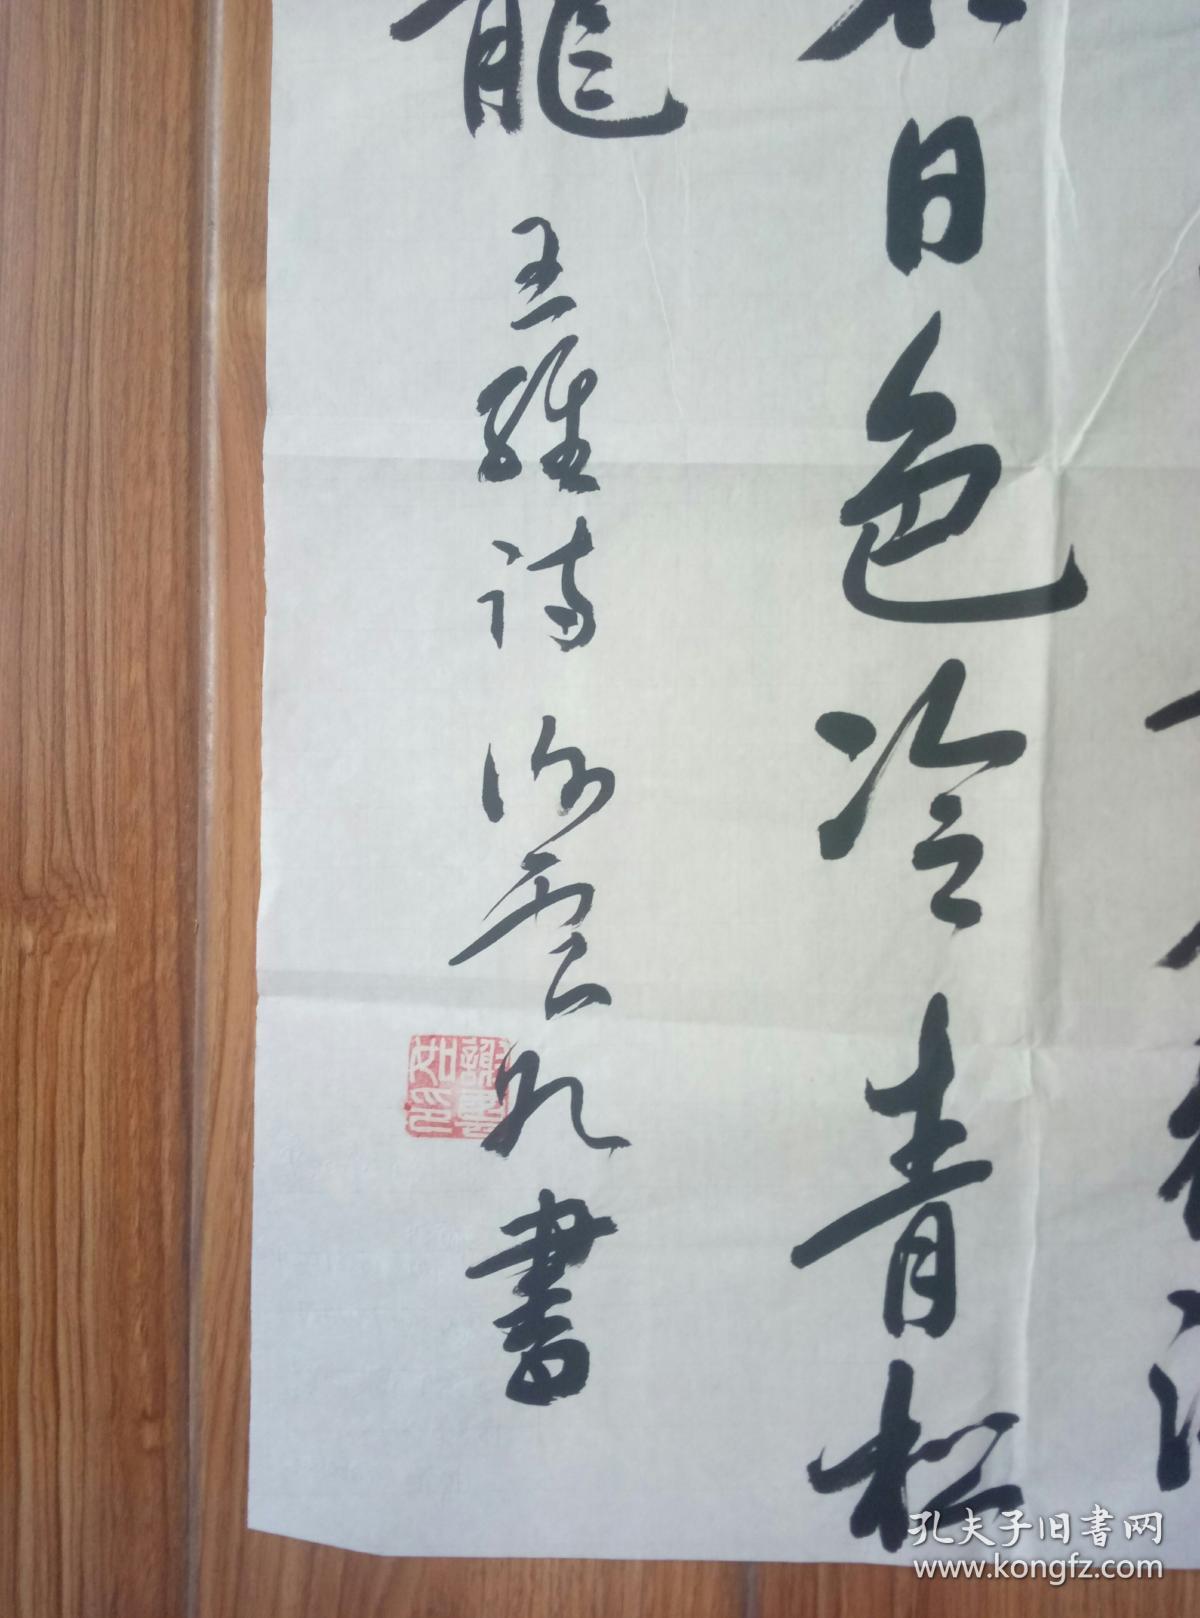 日色冷青松
龍
王維詩 謝雲如書
謝雲如印
孔夫子旧書网
www.kongfz.com